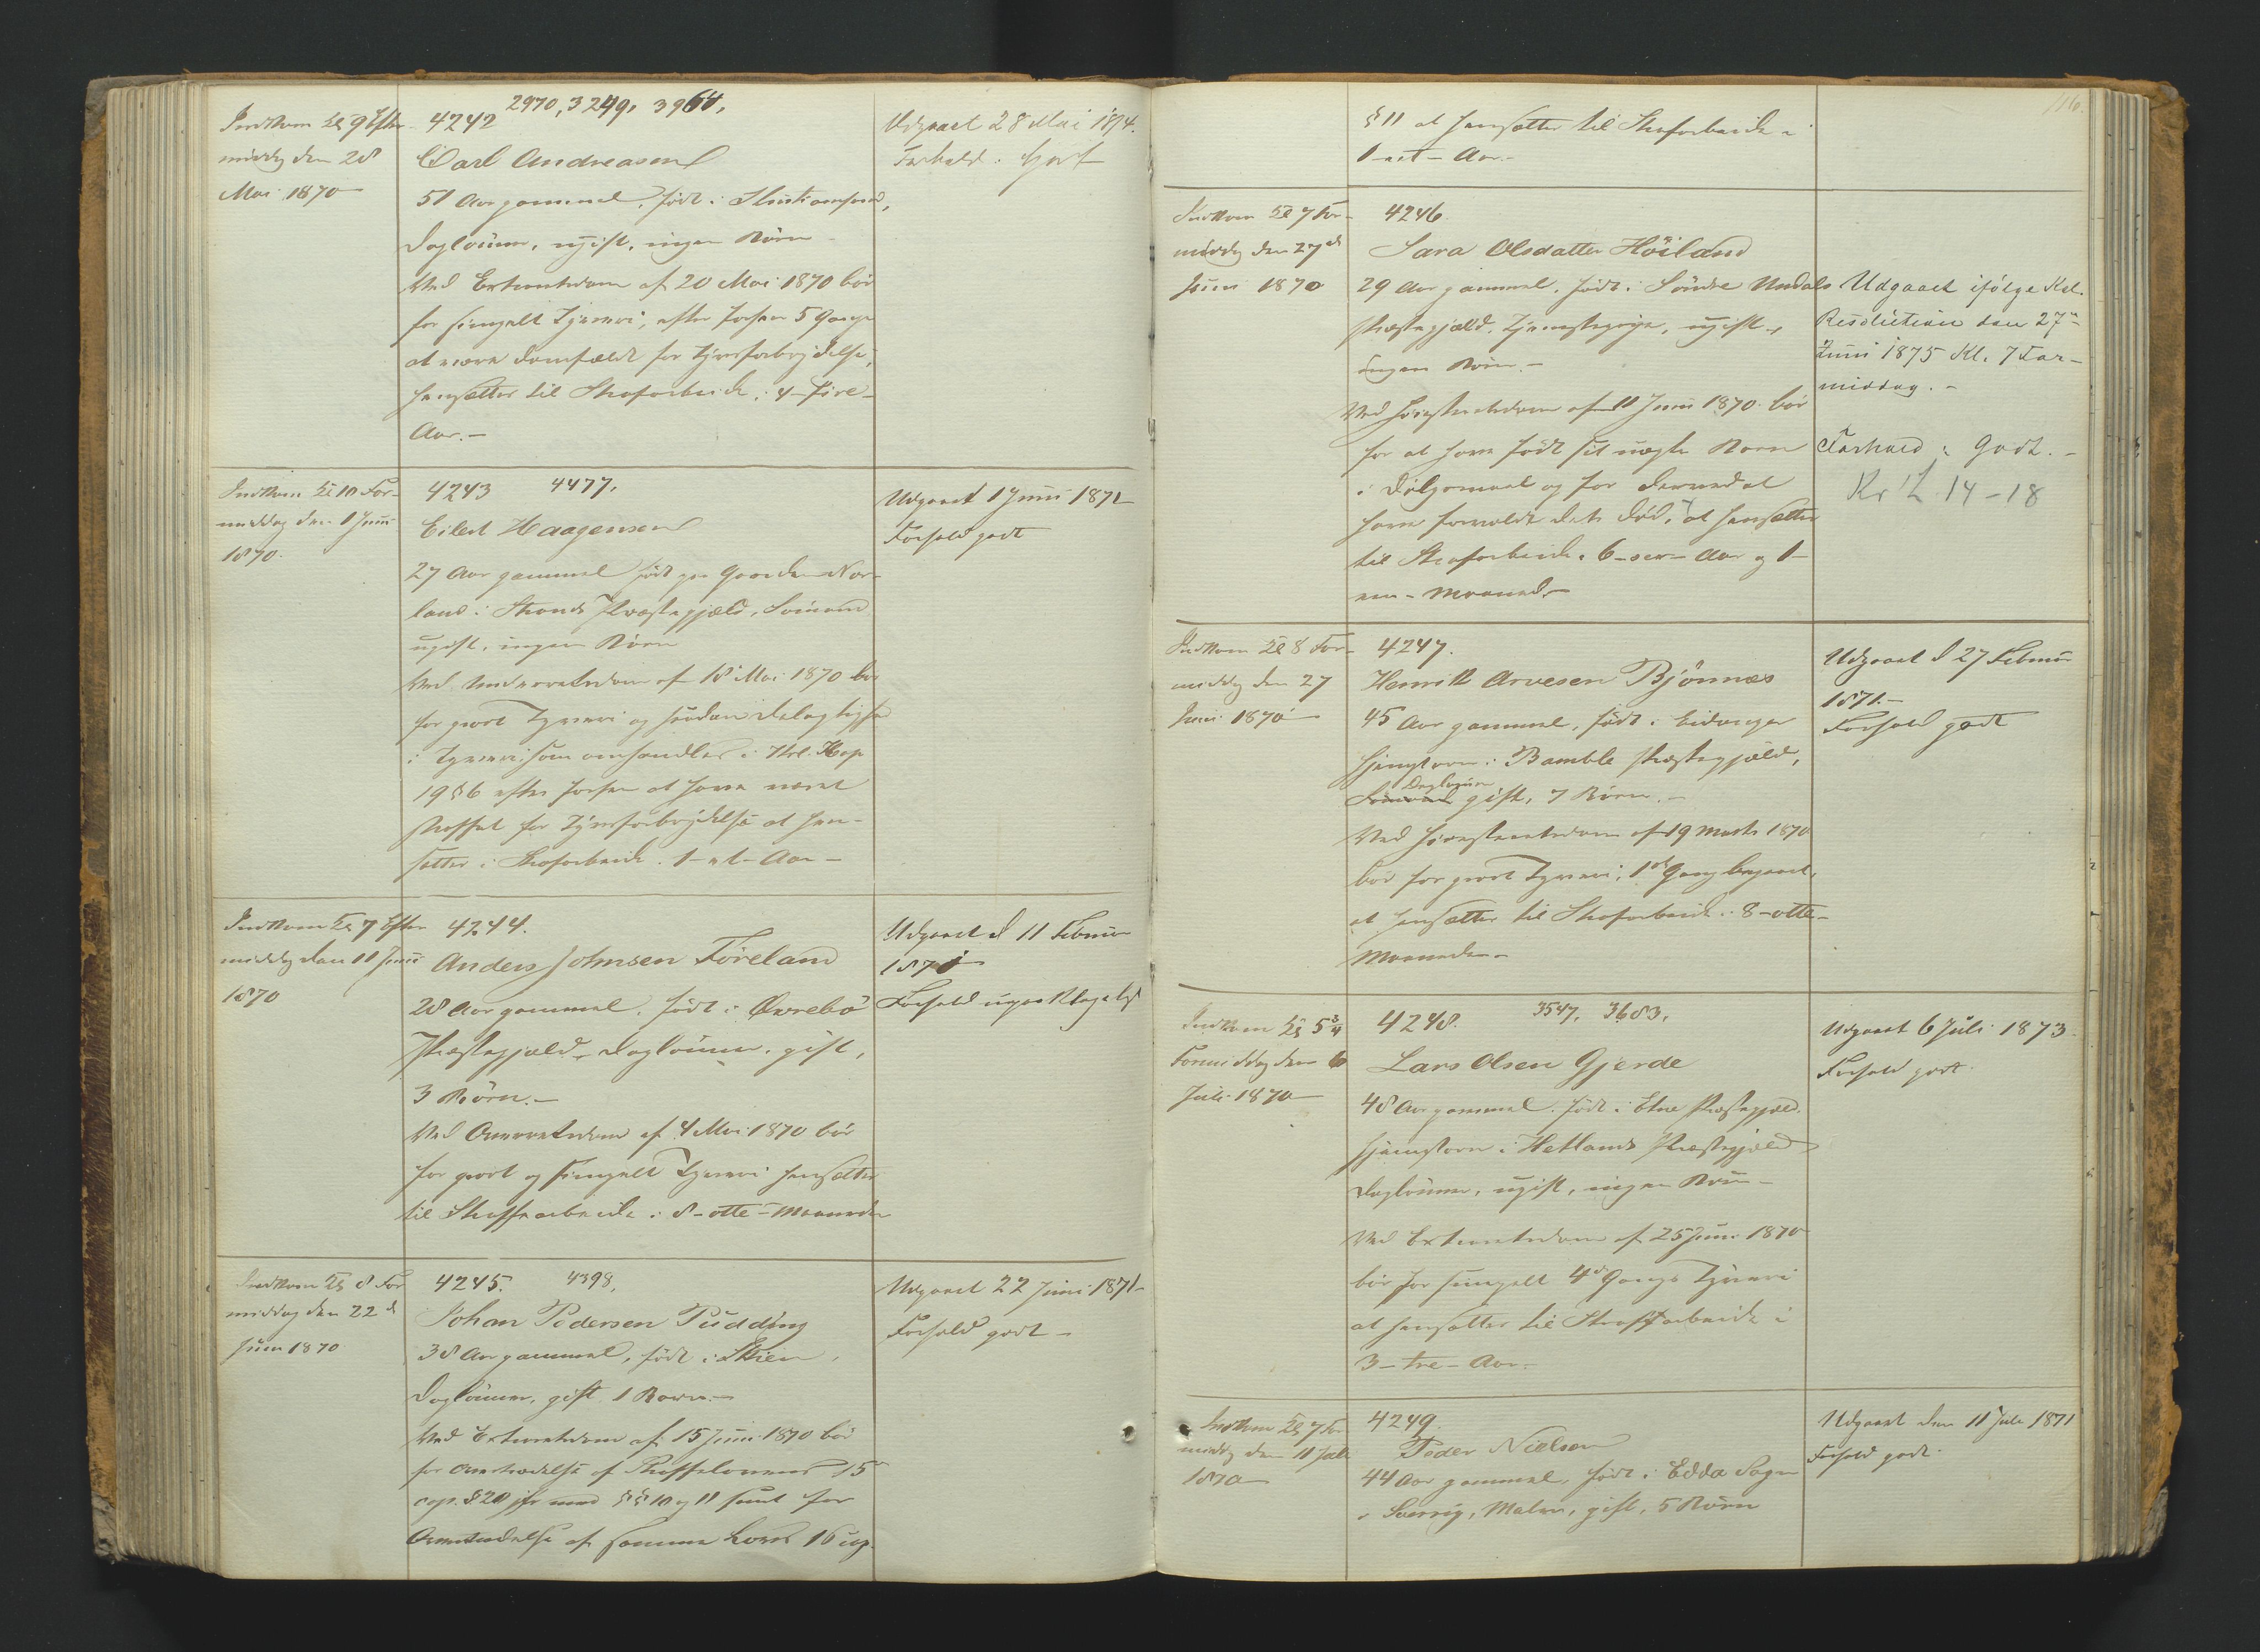 Indkom Kl 9 Efter-
middag den 28
Mai 1870
2970, 3249, 3964,
4242
Carl Andreasen
51 Aar gammel, født i Christiansund,
Daglønner, ugift, ingen Børn
Ved Extraretsdom af 20 Mai 1870 bør
for simpelt Tyveri, efter forhen 5 Gange
at være domfældt for Tyvsforbrydelse,
hensættes til Strafarbeide i 4-fire-
Aar.-
Udgaaet 28 Mai 1874.
Forhold: godt
Indkom Kl 10 For-
middag den 1 Juni
1870.
4243 4477,
Eilert Haagensen
27 Aar gammel født paa Gaarden Nor-
land i Strands Præstegjæld, Sømand
ugift, ingen Børn
Ved Underretsdom af 18 Mai 1870 bør
for grovt Tyveri og saadan Delagtighed
i Tyveri som omhandles i Strl. Kap
19 § 6 efter forhen at have været
straffet for Tyvsforbrydelse at hen-
sættes i Strafarbeide 1-et-Aar-
Udgaaet 1 Juni 1871
Forhold godt
Indkom Kl 7 Efter
middag den 11 Juni
1870
4244.
Anders Johnsen Føreland
28 Aar gammel, født i Øvrebø
Præstegjæld, Daglønner, gift,
3 Børn.-
Ved Overretsdom af 4 Mai 1870 bør
for grovt og simpelt Tyveri hensættes
til Straffarbeide i 8-otte-Maaneder
Udgaaet d 11 Februar
1871
Forhold upaaklageligt
Indkom Kl 8 For
middag den 22d
Juni 1870
4245. 4398,
Johan Pedersen Pudding
38 Aar gammel, født i Skien,
Daglønner, gift 1 Barn.-
Ved Extraretsdom af 15 Juni 1870 bør
for Overtrædelse af Straffelovens 15
cap. § 20 jfr med §§ 10 og 11 samt for
Overtrædelse af samme Lovs 16 cap.
Udgaaet 22 Juni 1871-
Forhold godt-
116.
§ 11 at hensættes til Strafarbeide i
1-et-Aar.-
Indkom Kl 7 For-
middag den 27de
Juni 1870
4246.
Sara Olsdatter Höiland
29 Aar gammel, født i Søndre Undals
Præstegjæld, Tjenestepige, ugift,
ingen Børn.-
Ved Høiesteretsdom af 11 Juni 1870 bør
for at have født sit uægte Barn
i Dølgsmaal og for derved at
have forvoldt dets Død, at hensættes
til Strafarbeide i 6-sex-Aar og 1-
een-Maaned.-
Udgaaet ifølge Kgl.
Resolution den 27de
Juni 1875 Kl. 7 For-
middag.-
Forhold: Godt.-
Indkom Kl 8 For-
middag den 27
Juni 1870
4247.
Henrik Arvesen Bjönnæs
45 Aar gammel, født i Eidanger
hjemstavn i Bamble Præstegjæld,
Daglønner
Sømand gift, 7 Børn.-
Ved Høiesteretsdom af 19 Marts 1870
bør for grovt Tyveri, 1ste Gang begaaet,
at hensættes til Strafarbeide i 8-otte-
Maaneder-
Udgaaet d 27 Februar
1871.-
Forhold godt
Indkom Kl 5 3/4
Formiddag den 6
Juli 1870
4248. 3547, 3683,
Lars Olsen Gjerde
48 Aar gammel, født i Etne Præstegjæld
hjemstavn i Hetlands Præstegjæld
Daglønner, ugift, ingen Børn-
Ved Extraretsdom af 25 Juni 1870
bør for simpelt 4de Gangs Tyveri
at hensættes til Straffarbeide i
3-tre-Aar.-
Udgaaet 6 Juli 1873
Forhold godt.
Indkom Kl 7 For
middag den 11 Juli
1870
4249.
Peder Nielsen
44 Aar gammel, født i Edda Sogn
i Sverrig, Maler, gift, 5 Børn
Udgaaet den 11 Juli 1871
Forhold godt.